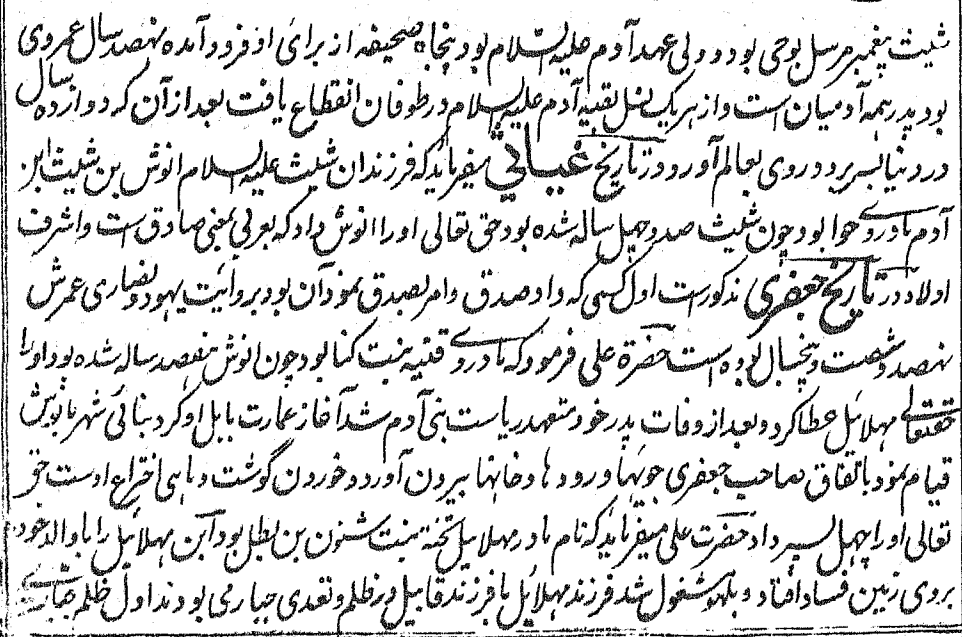 شیث پیغمبر مرسل بوحی بود و ولی عهد آدم علیه السلام بود پنجاه صحیفه از برای او فرود آمده نهصد سال عمر وی
بود پدر همه آدمیان است و از هریک نسل بقیه آدم علیه السلام در طوفان انقطاع یافت بعد از آن که دوازده سال
در دنیا بسر برد و روی بعالم آورد و در تاریخ غیاثی میفرماید که فرزندان شیث علیه السلام انوش بن شیث ابن
آدم مادر وی حوا بود چون شیث صد و چهل ساله شده بود حق تعالی او را انوش داد که بعربی بمعنی صادق است و اشرف
اولاد در تاریخ جعفری مذکور است اول کسی که داد صدق و امر بصدق نمود آن بود بروایت یهود و نصاری عمرش
نهصد و شصت و پنجسال بوده است حضرة علی فرمود که مادر وی قنیه بنت کنا بود چون انوش هفصد ساله شده بود او را
حقتعالی مهلائل عطا کرد و بعد از وفات پدر خود متعهد ریاست بنی آدم شد آغاز عمارت بابل او کرد بنائی شهر با نوش
قیام نمود باتفاق صاحب جعفری جویها و رودها و خانها بیرون آورد و خوردن گوشت و ماهی اختراع اوست حق
تعالی او را چهل پسر داد حضرت علی میفرماید که نام مادر مهلائیل تخته بنت شنون بن بطل بود آبن مهلائیل را با والد خود
بروی زمین فساد افتاد و بلهو مشغول شد فرزند مهلائل با فرزند قابیل در ظلم و تعدی جباری بودند اول ظلم جباری